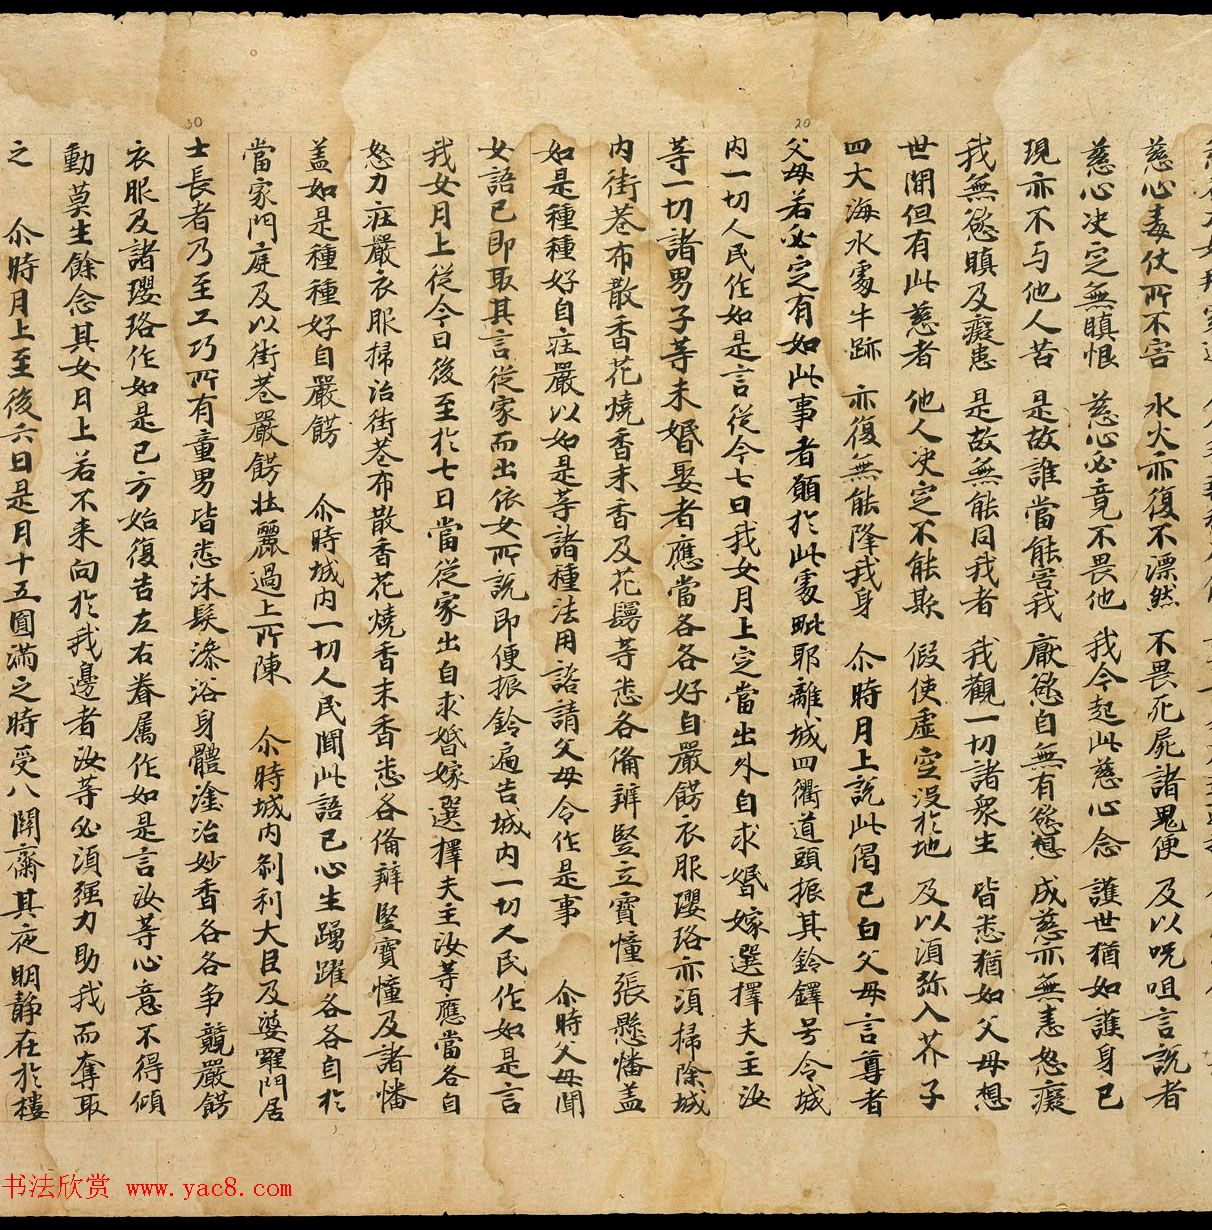 慈心毒仗所不害 水火亦復不漂然 不畏死屍諸鬼便 及以呪咀言說者
慈心决定無瞋恨 慈心必竟不畏他 我今起此慈心念 護世猶如護身已
現亦不与他人苦 是故誰當能害我 厭慾自無有慾想 成慈亦無恚怒癡
我無慾瞋及癡恚 是故無能同我者 我觀一切諸衆生 皆悉猶如父母想
世間但有此慈者 他人决定不能欺 假使虛空没於地 及以湏弥入芥子
四大海水處牛跡 亦復無能降我身 尒時月上說此偈已白父母言尊者
父母若必定有如此事者願於此處毗耶離城四衢道頭振其鈴鐸号令城
内一切人民作如是言從今七日我女月上定當出外自求婚嫁選擇夫主汝
等一切諸男子等未婚娶者應當各各好自嚴餝衣服瓔珞亦湏掃除城
内街巷布散香花燒香末香及花鬘等悉各俻辦竪立寶憧張懸幡盖
如是種種好自莊嚴以如是等諸種法用諮請父母令作是事 尒時父母聞
女語已即取其言從家而出依女所說即便振鈴遍告城内一切人民作如是言
我女月上從今日後至於七日當從家出自求婚嫁選擇夫主汝等應當各自
怒力莊嚴衣服掃治街巷布散香花燒香末香悉各俻辦竪寶憧及諸幡
盖如是種種好自嚴餝 尒時城内一切人民聞此語已心生踴躍各各自於
當家門庭及以街巷嚴餝壮麗過上所陳 尒時城内刹利大臣及婆羅門居
士長者乃至工巧所有童男皆悉沐髮澡浴身體塗治妙香各各争競嚴餝
衣服及諸瓔珞作如是已方始復告左右眷属作如是言汝等心意不得傾
動莫生餘念其女月上若不来向於我邊者汝等必湏强力助我而奪取
之 尒時月上至後六日是月十五圓滿之時受八關齋其夜明静在於樓
20
30
书法欣赏 www.yac8.com